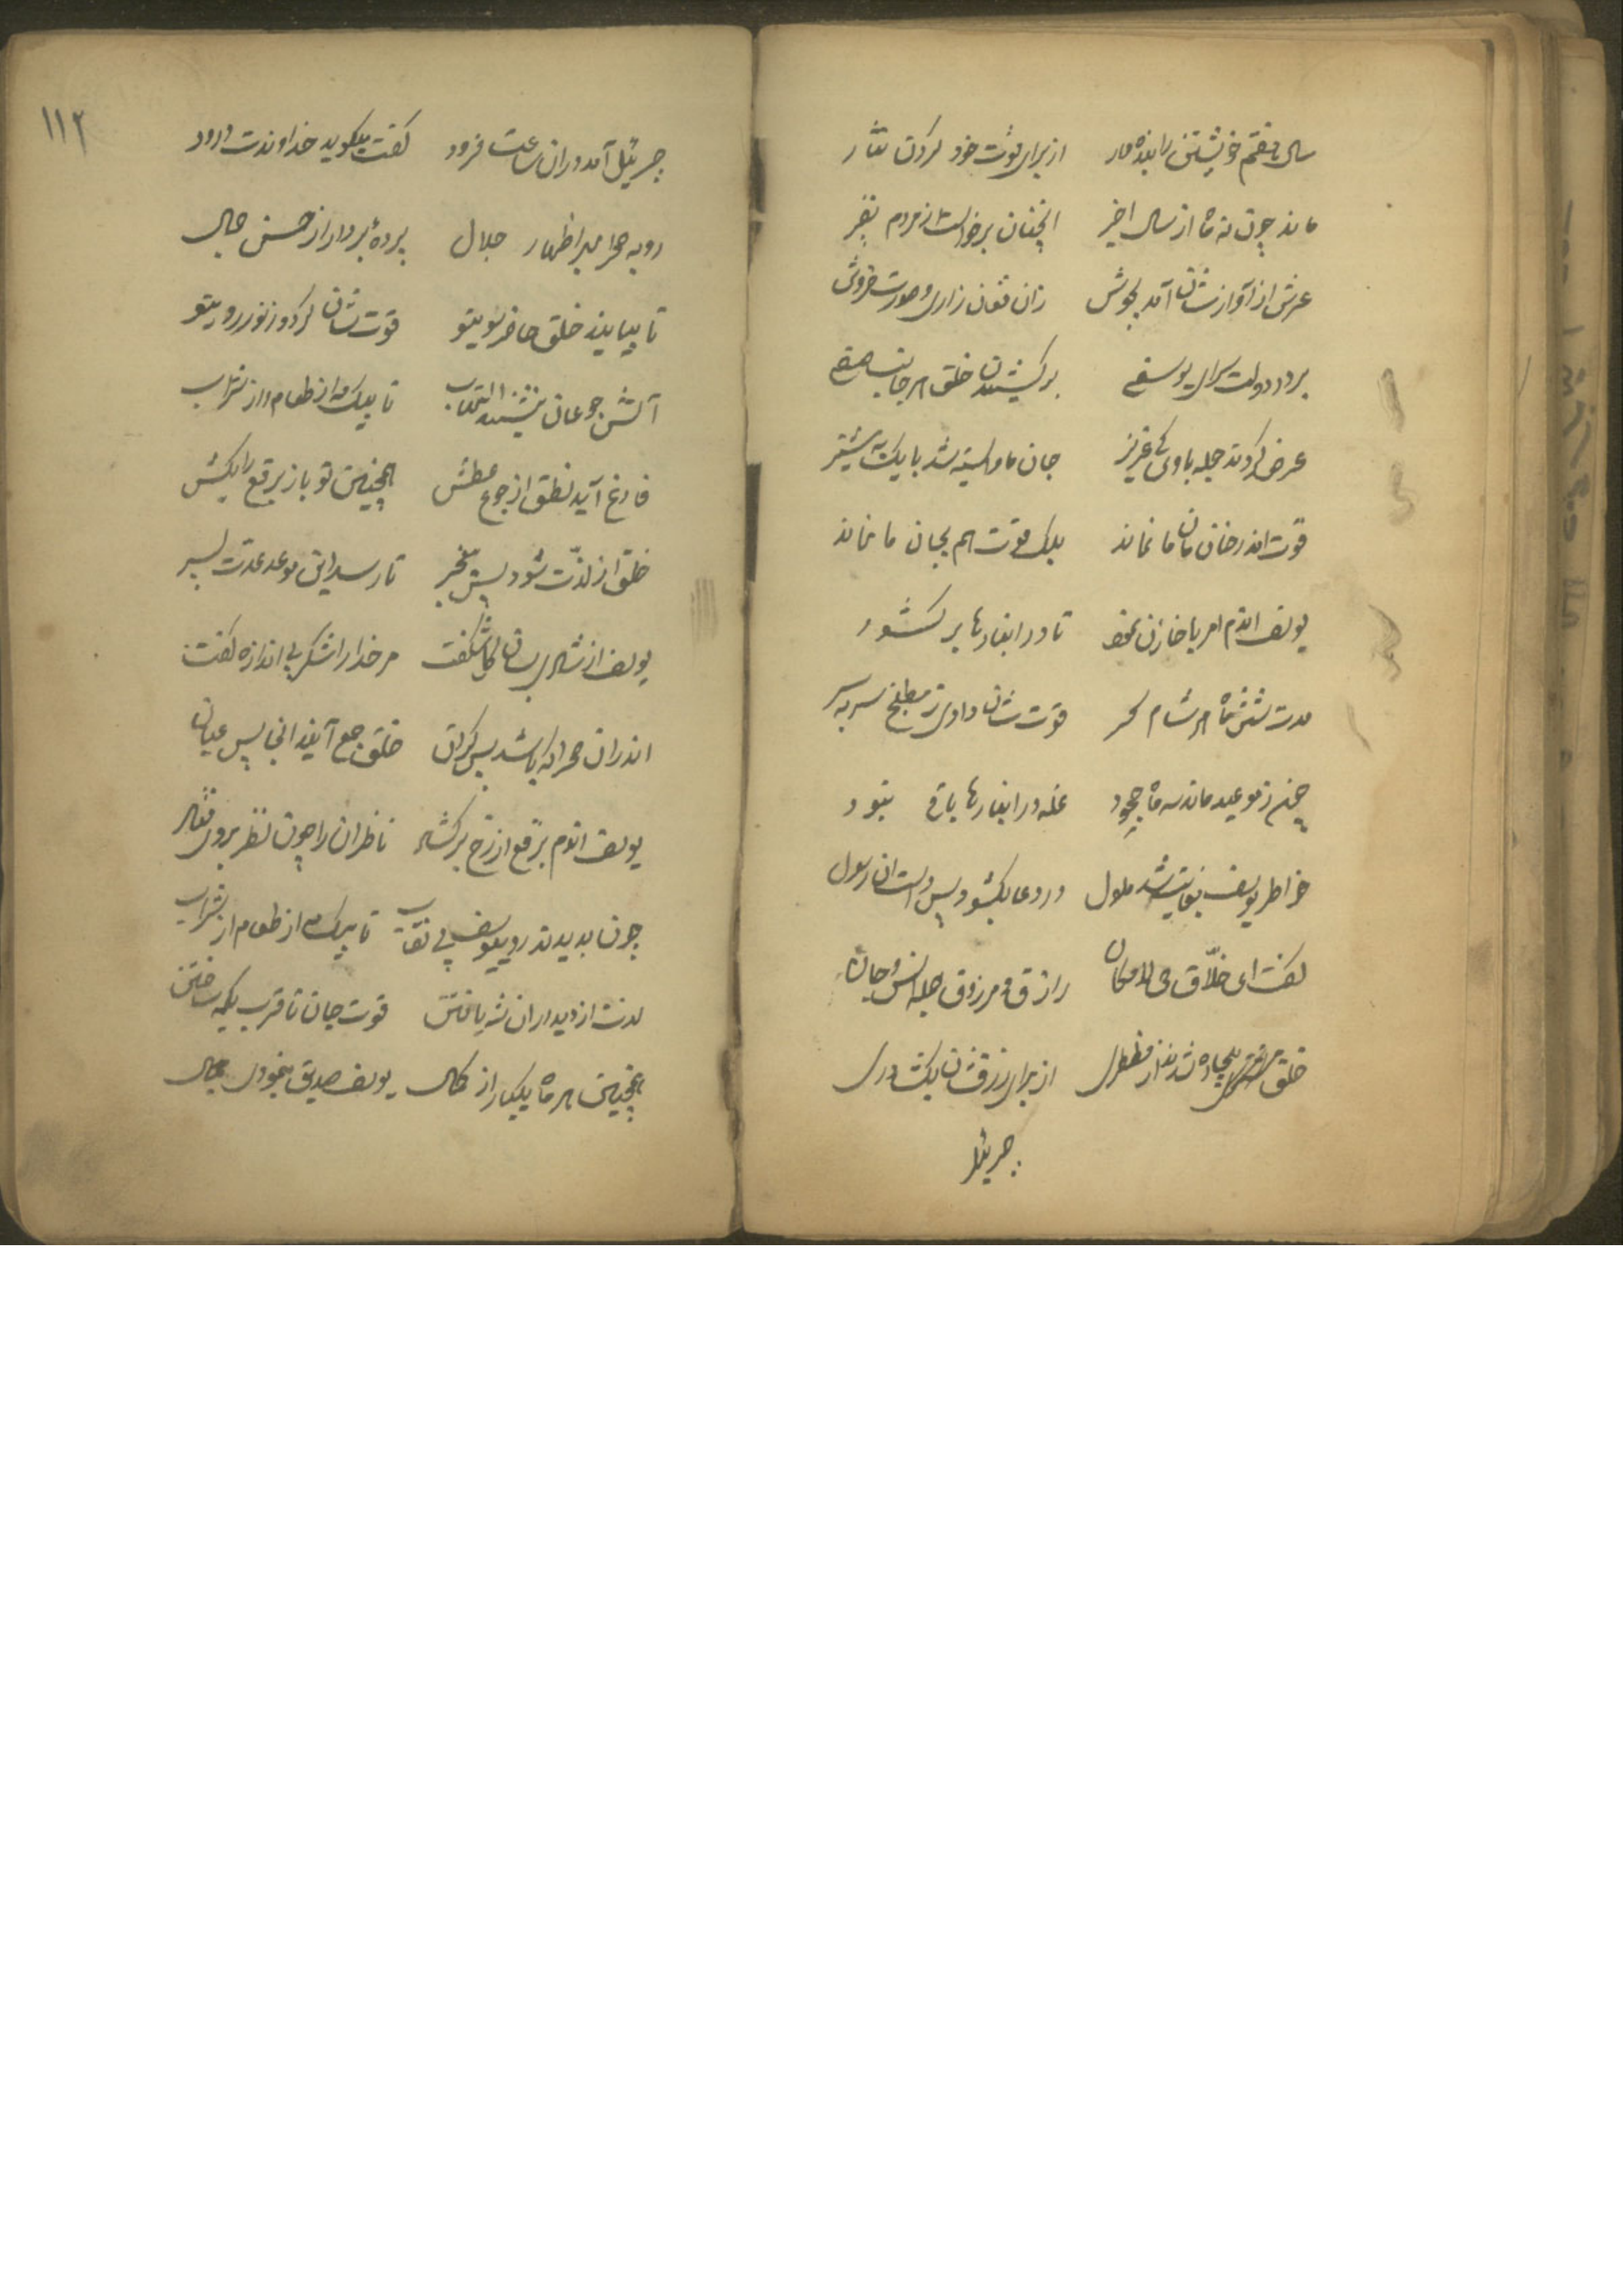 سال هفتم خویشتن را بنده وار از برای قوت خود کردن نثار
ماند چون نه ماه از سال اخیر آنچنان برخواست از مردم نفیر
عرش از آواز شان آمد بجوش زان فغان زاری و صورت خروش
بر در دولت سرای یوسفی برکشیدن خلق هر جانب صفی
عرض کردند جمله با وی کای عزیز جان ما وابسته شد با یک پشیز
قوت اندر خان مان ما نماند بلک قوت هم بجان ما نماند
یوسف اندم امر با خازن نمود تا در انبارها بر کشود
مدت شش ماه هر شام سحر قوت شان دادی ز مطبخ سربسر
چون ز موعید ماند سه ماه وجود غله در انبارها باقی نبود
خاطر یوسف بغایت شد ملول در دعا بکشود پس دست ان رسول
گفت ای خلاق حی لامکان رازق و مرزوق جمله انس و جان
خلق بیچاره شدند از مضطری از برای رزق شان بکشا دری
جبرئیل
۱۱۲
جبرئیل آمد دران ساعت فرود گفت میگوید خداوندت درود
رو به صحرا بهر اظهار جلال پردهٔ بردار از حسن جمال
تا بیایند خلق حاضر سوی تو قوت شان گردد ز نور روی تو
آتش جوعان نشیند التهاب تا بیک مه از طعام و از شراب
فارغ آید نطق از جوع عطش همچنین تو باز برقع را بکش
خلق از لذت شود پس بیخبر تا رسد این موعد عدت بسر
یوسف از شادی بسان گل شگفت مر خدا را شکر بی اندازه گفت
اندران صحرا که باشد بیکران خلق جمع آیند انجا پس عیان
یوسف اندم برقع از رخ برکشاد ناظران را چون نظر بر وی فتاد
چون بدیدند روی یوسف بی نقاب تا بیک مه از طعام از شراب
لذت از دیدار ان شه یافتن قوت جان تا قرب یکمه ساختن
همچنین هر ماه یکبار از کمال یوسف صدیق بنمودی جمال